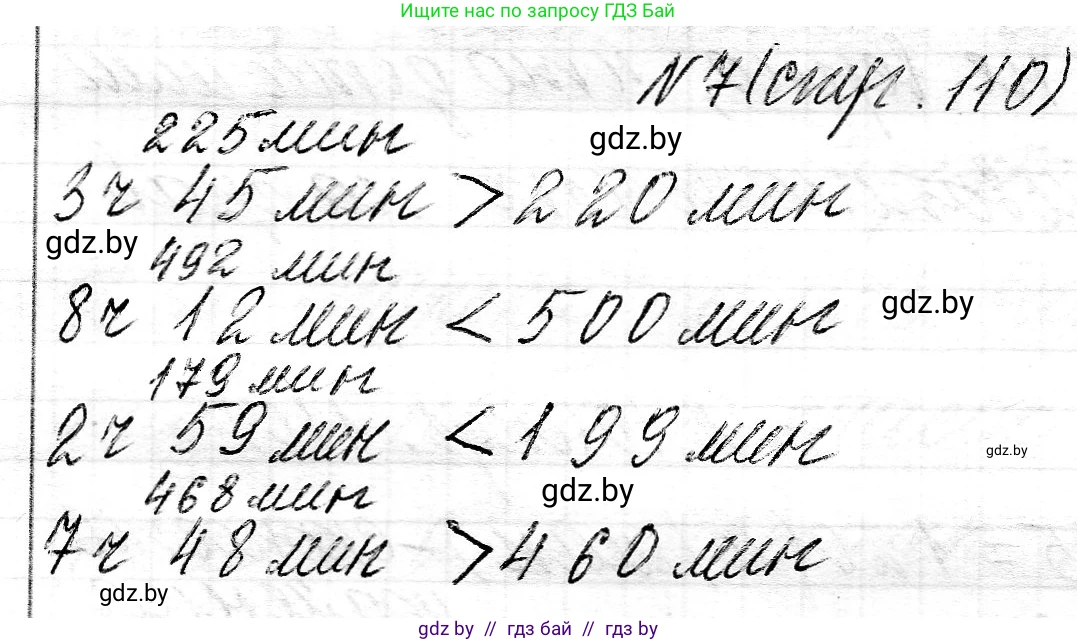 Ищите нас по запросу ГДЗ Бай
N 7 (стр. 110)
225 мин
gdz.by
3 ч 45 мин > 220 мин
gdz.by
492 мин
8 ч 12 мин < 500 мин
gdz.by
179 мин
2 ч 59 мин < 199 мин
gdz.by
468 мин
gdz.by
7 ч 48 мин > 460 мин
gdz.by
gdz.by // гдз бай // gdz.by